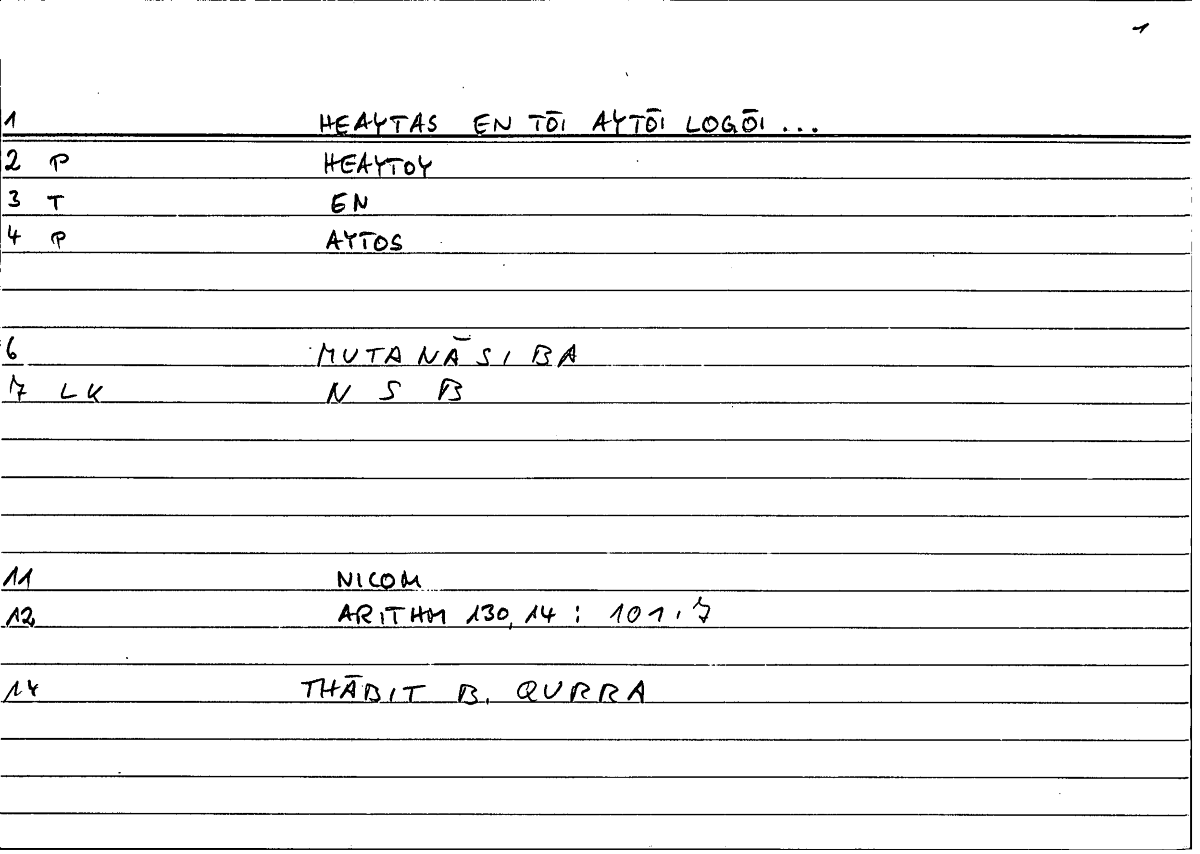 1
1 HEAYTAS EN TŌI AYTŌI LOGŌI ...
2 P HEAYTOY
3 T EN
4 P AYTOS
6 MUTANĀSIBA
7 LK N S B
11 NICOM
12 ARITHM 130,14 : 101.7
14 THĀBIT B. QURRA